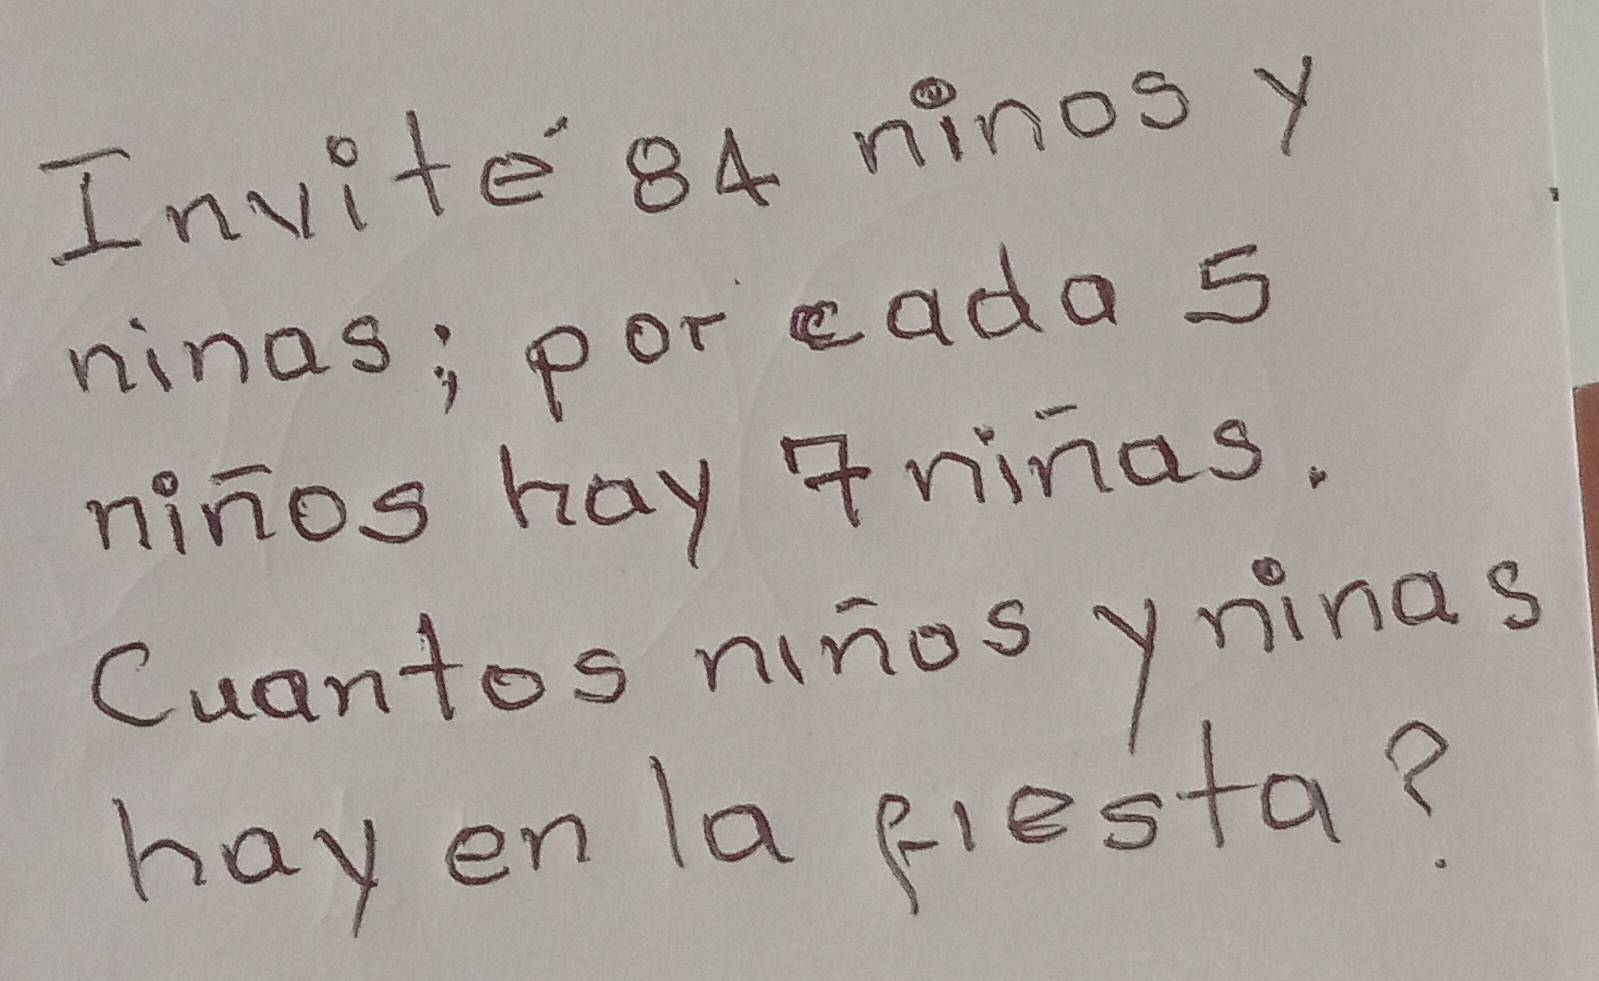 Invité 84 ninos y
ninas; por cada 5
niños hay 7 niñas.
Cuantos niños y ninas
hay en la fiesta?